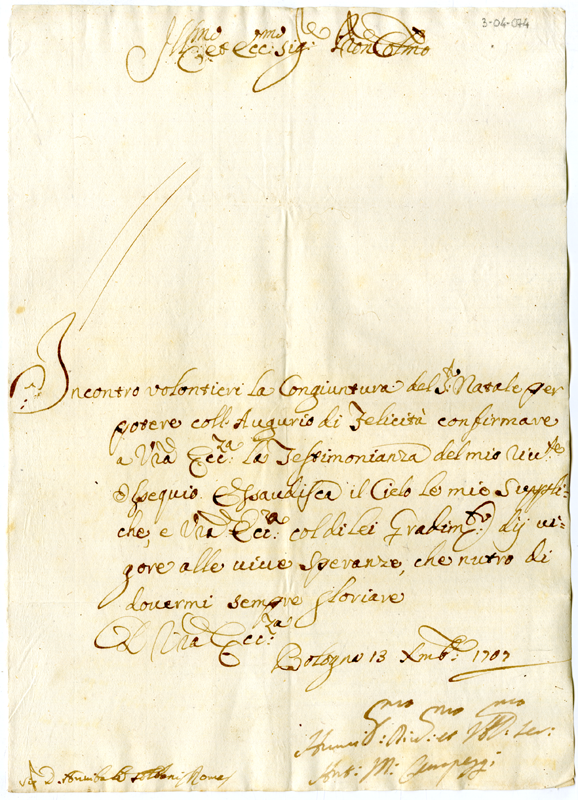 3-04-074
Ill.mo et Ecc.mo Sig.re Pron Colmo
Incontro volontieri la Congiuntura del S. Natale per
potere coll' Augurio di Felicità confirmare
a Vra Ecc.za la Testimonianza del mio
Ossequio. Essaudisca il Cielo le mie Suppli-
che, e Vra Ecc.za col di lei Gradim.to dij vi-
gore alle vive speranze, che nutro di
dovermi sempre gloriare
Di Vra Ecc.za
Bologna 13 Xmbre 1707
Ant. M.
Sig. D. Annibale Albani Roma